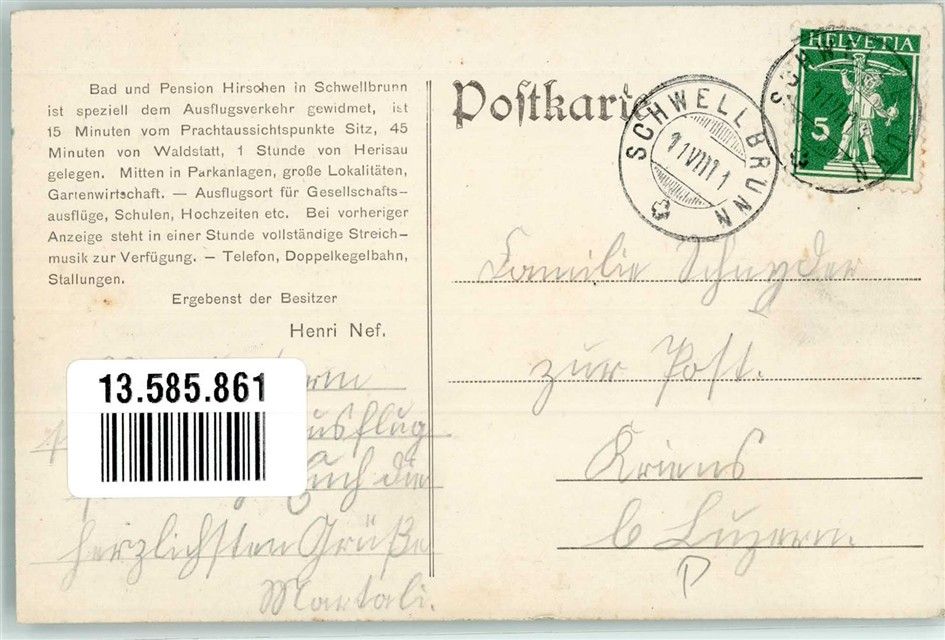 Bad und Pension Hirschen in Schwellbrunn
ist speziell dem Ausflugsverkehr gewidmet, ist
15 Minuten vom Prachtaussichtspunkte Sitz, 45
Minuten von Waldstatt, 1 Stunde von Herisau
gelegen. Mitten in Parkanlagen, große Lokalitäten,
Gartenwirtschaft. — Ausflugsort für Gesellschafts-
ausflüge, Schulen, Hochzeiten etc. Bei vorheriger
Anzeige steht in einer Stunde vollständige Streich-
musik zur Verfügung. — Telefon, Doppelkegelbahn,
Stallungen.
Ergebenst der Besitzer
Henri Nef.
13.585.861
Ausflug
Euch die
herzlichsten Grüße
Martali.
Postkarte
SCHWELLBRUNN
HELVETIA
5
Familie Schnyder
zur Post.
Kriens
b Luzern.